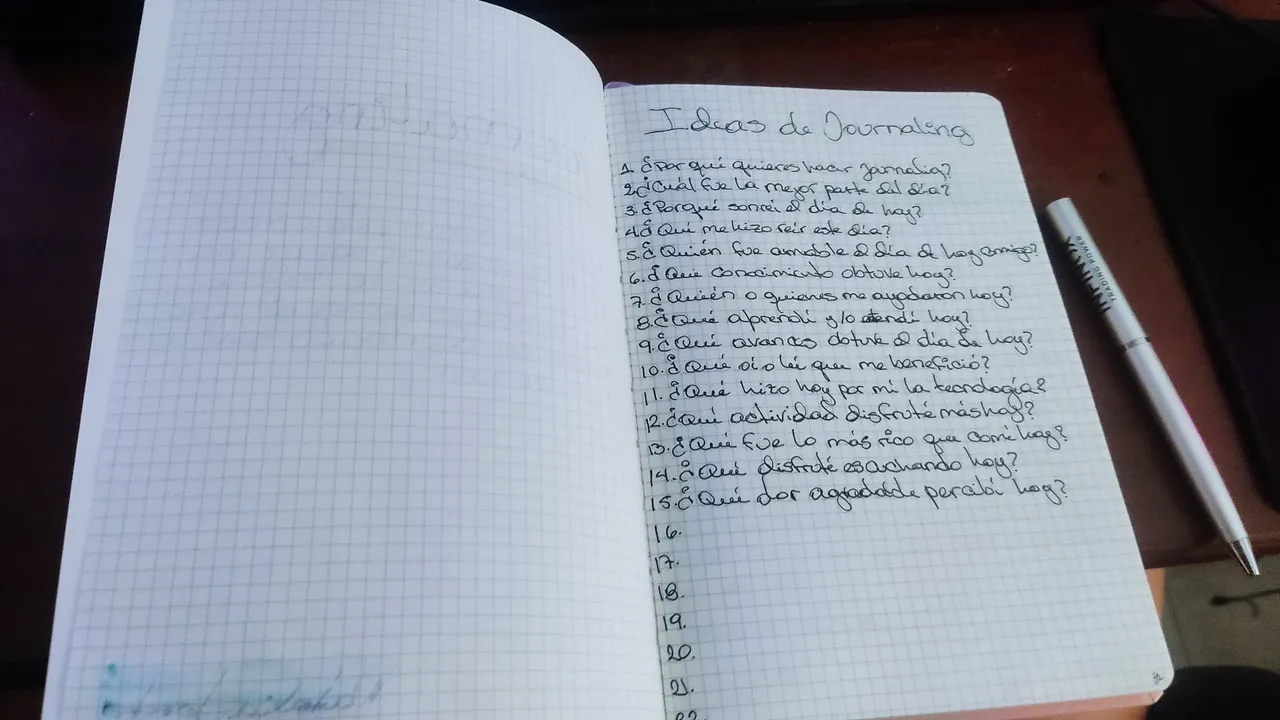 Ideas de Journaling
1. ¿Por qué quieres hacer journaling?
2. ¿Cuál fue la mejor parte del día?
3. ¿Porqué sonreí el día de hoy?
4. ¿Qué me hizo reír este día?
5. ¿Quién fue amable el día de hoy conmigo?
6. ¿Qué conocimiento obtuve hoy?
7. ¿Quién o quienes me ayudaron hoy?
8. ¿Qué aprendí y/o atendí hoy?
9. ¿Qué avances obtuve el día de hoy?
10. ¿Qué oí o leí que me benefició?
11. ¿Qué hizo hoy por mí la tecnología?
12. ¿Qué actividad disfruté más hoy?
13. ¿Qué fue lo más rico que comí hoy?
14. ¿Qué disfruté escuchando hoy?
15. ¿Qué olor agradable percibí hoy?
16.
17.
18.
19.
20.
21.
22.
INFINOX
TRADING POWER